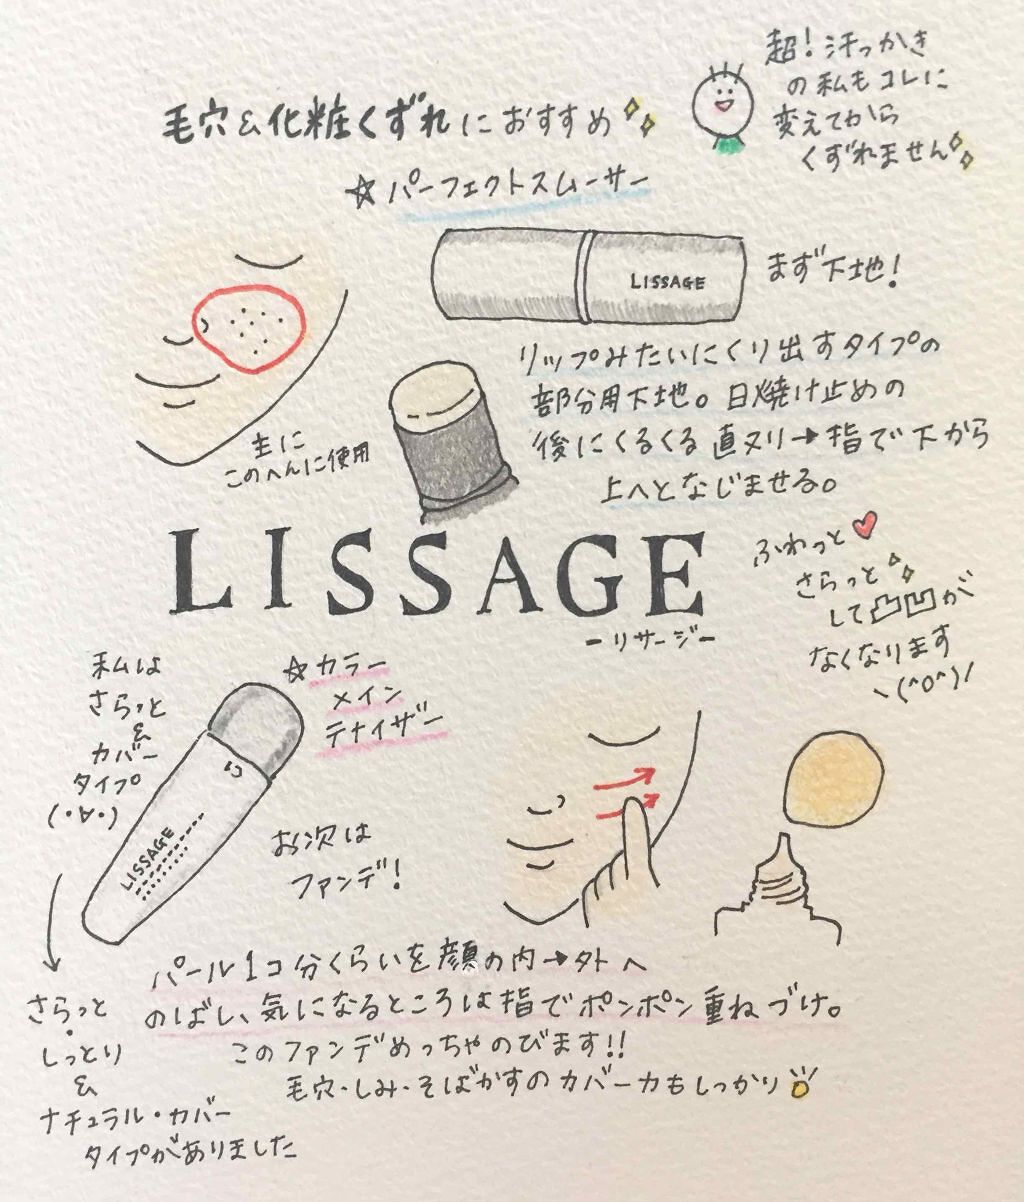 毛穴&化粧くずれにおすすめ
超!汗っかき
の私もコレに
変えてから
くずれません
☆パーフェクトスムーサー
LISSAGE
まず下地!
リップみたいにくり出すタイプの
部分用下地。日焼け止めの
後にくるくる直ヌリ→指で下から
上へとなじませる。
主に
このへんに使用
LISSAGE
ーリサージー
ふわっと
さらっと
して凸凹が
なくなります
\(^o^)/
私は
さらっと
&
カバー
タイプ
(・∀・)
☆カラー
メイン
テナイザー
LISSAGE
お次は
ファンデ!
パール1コ分くらいを顔の内→外へ
のばし、気になるところは指でポンポン重ねづけ。
このファンデめっちゃのびます!!
毛穴・しみ・そばかすのカバー力もしっかり
さらっと
・
しっとり
&
ナチュラル・カバー
タイプがありました